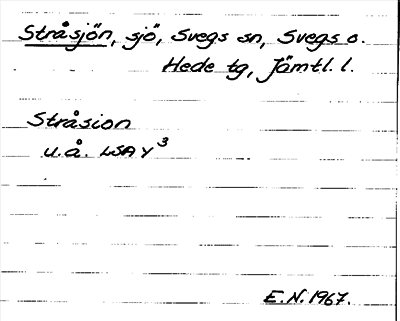 Stråsjön, sjö, Svegs sn, Svegs o.
Hede tg, Jämtl. l.
Stråsion
u.å. LSA Y³
E.N. 1967.